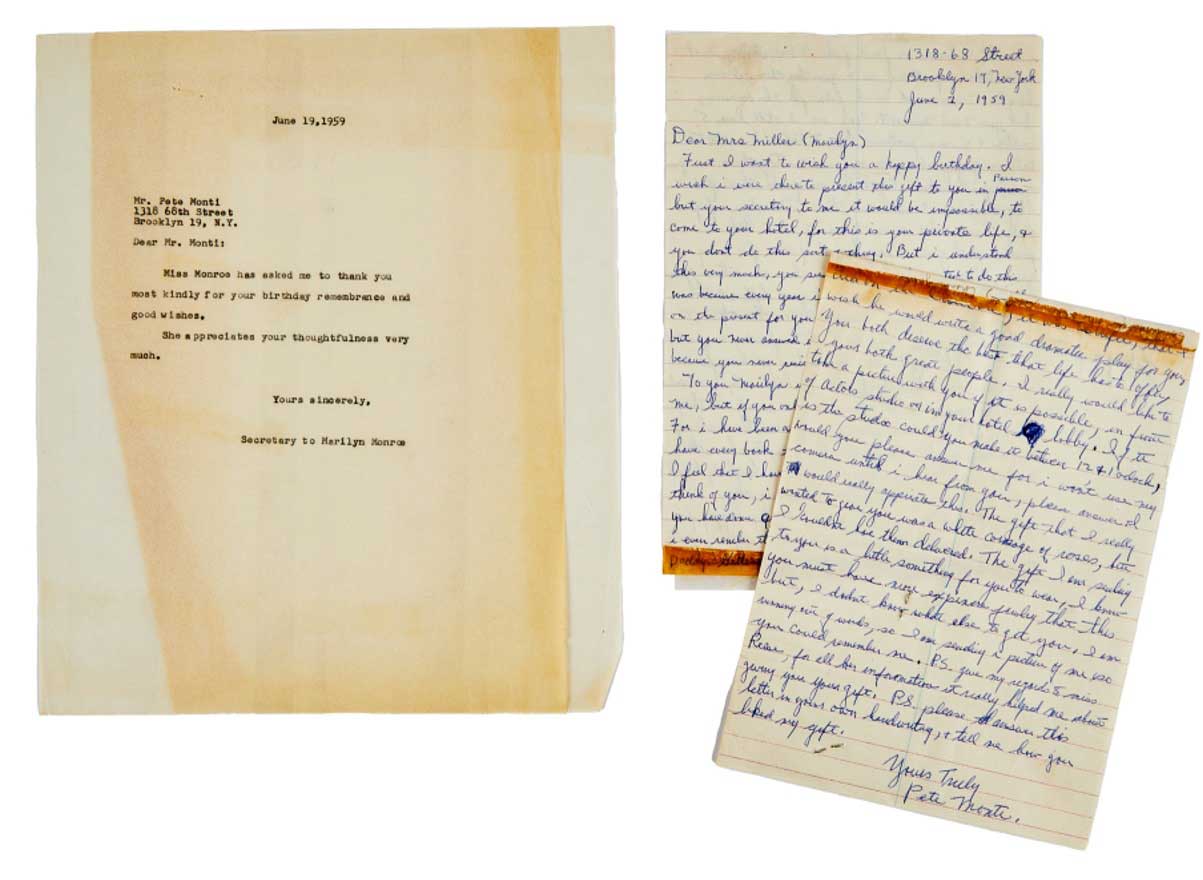 June 19,1959
Mr. Pete Monti
1318 68th Street
Brooklyn 19, N.Y.
Dear Mr. Monti:
Miss Monroe has asked me to thank you
most kindly for your birthday remembrance and
good wishes.
She appreciates your thoughtfulness very
much.
Yours sincerely,
Secretary to Marilyn Monroe
1318-68 Street
Brooklyn 19, New York
June 2, 1959
Dear Mrs Miller (Marilyn)
First I want to wish you a happy birthday. I
wish i were there to present this gift to you in Person
but your secretary to me it would be impossible, to
come to your hotel, for this is your private life, &
you dont do this sort of thing. But i understand
this very much, you see to do this
was because every year i
on the present for you
but you never answer
because you never
To you Marilyn i
me, but if you
For i have been a
have every book
I feel that I have
think of you, i
you have done
i even remember
wish he would write a good dramatic play for you,
You both deserve the best that life has to offer
your both great people. I really would like to
take a picture with you if it is possible, in front
of Actors studio or in your hotel lobby. If it
is the studio could you make it between 12 & 1 oclock,
would you please answer me for i won't use my
camera until i hear from you, please answer I
would really appreciate this. The gift that I really
wanted to give you was a white corsage of roses, but
I couldn't have them delivered. The gift I am sending
to you is a little something for you to wear, I know
you must have more expensive jewelry than this
but, I didn't know what else to get you. I am
running out of words, so I am sending i picture of me so
you could remember me. P.S. give my regards to miss
Reese, for all her information it really helped me about
giving you your gift. P.S. please answer this
letter in your own handwriting, & tell me how you
liked my gift.
Yours Truly
Pete Monti.